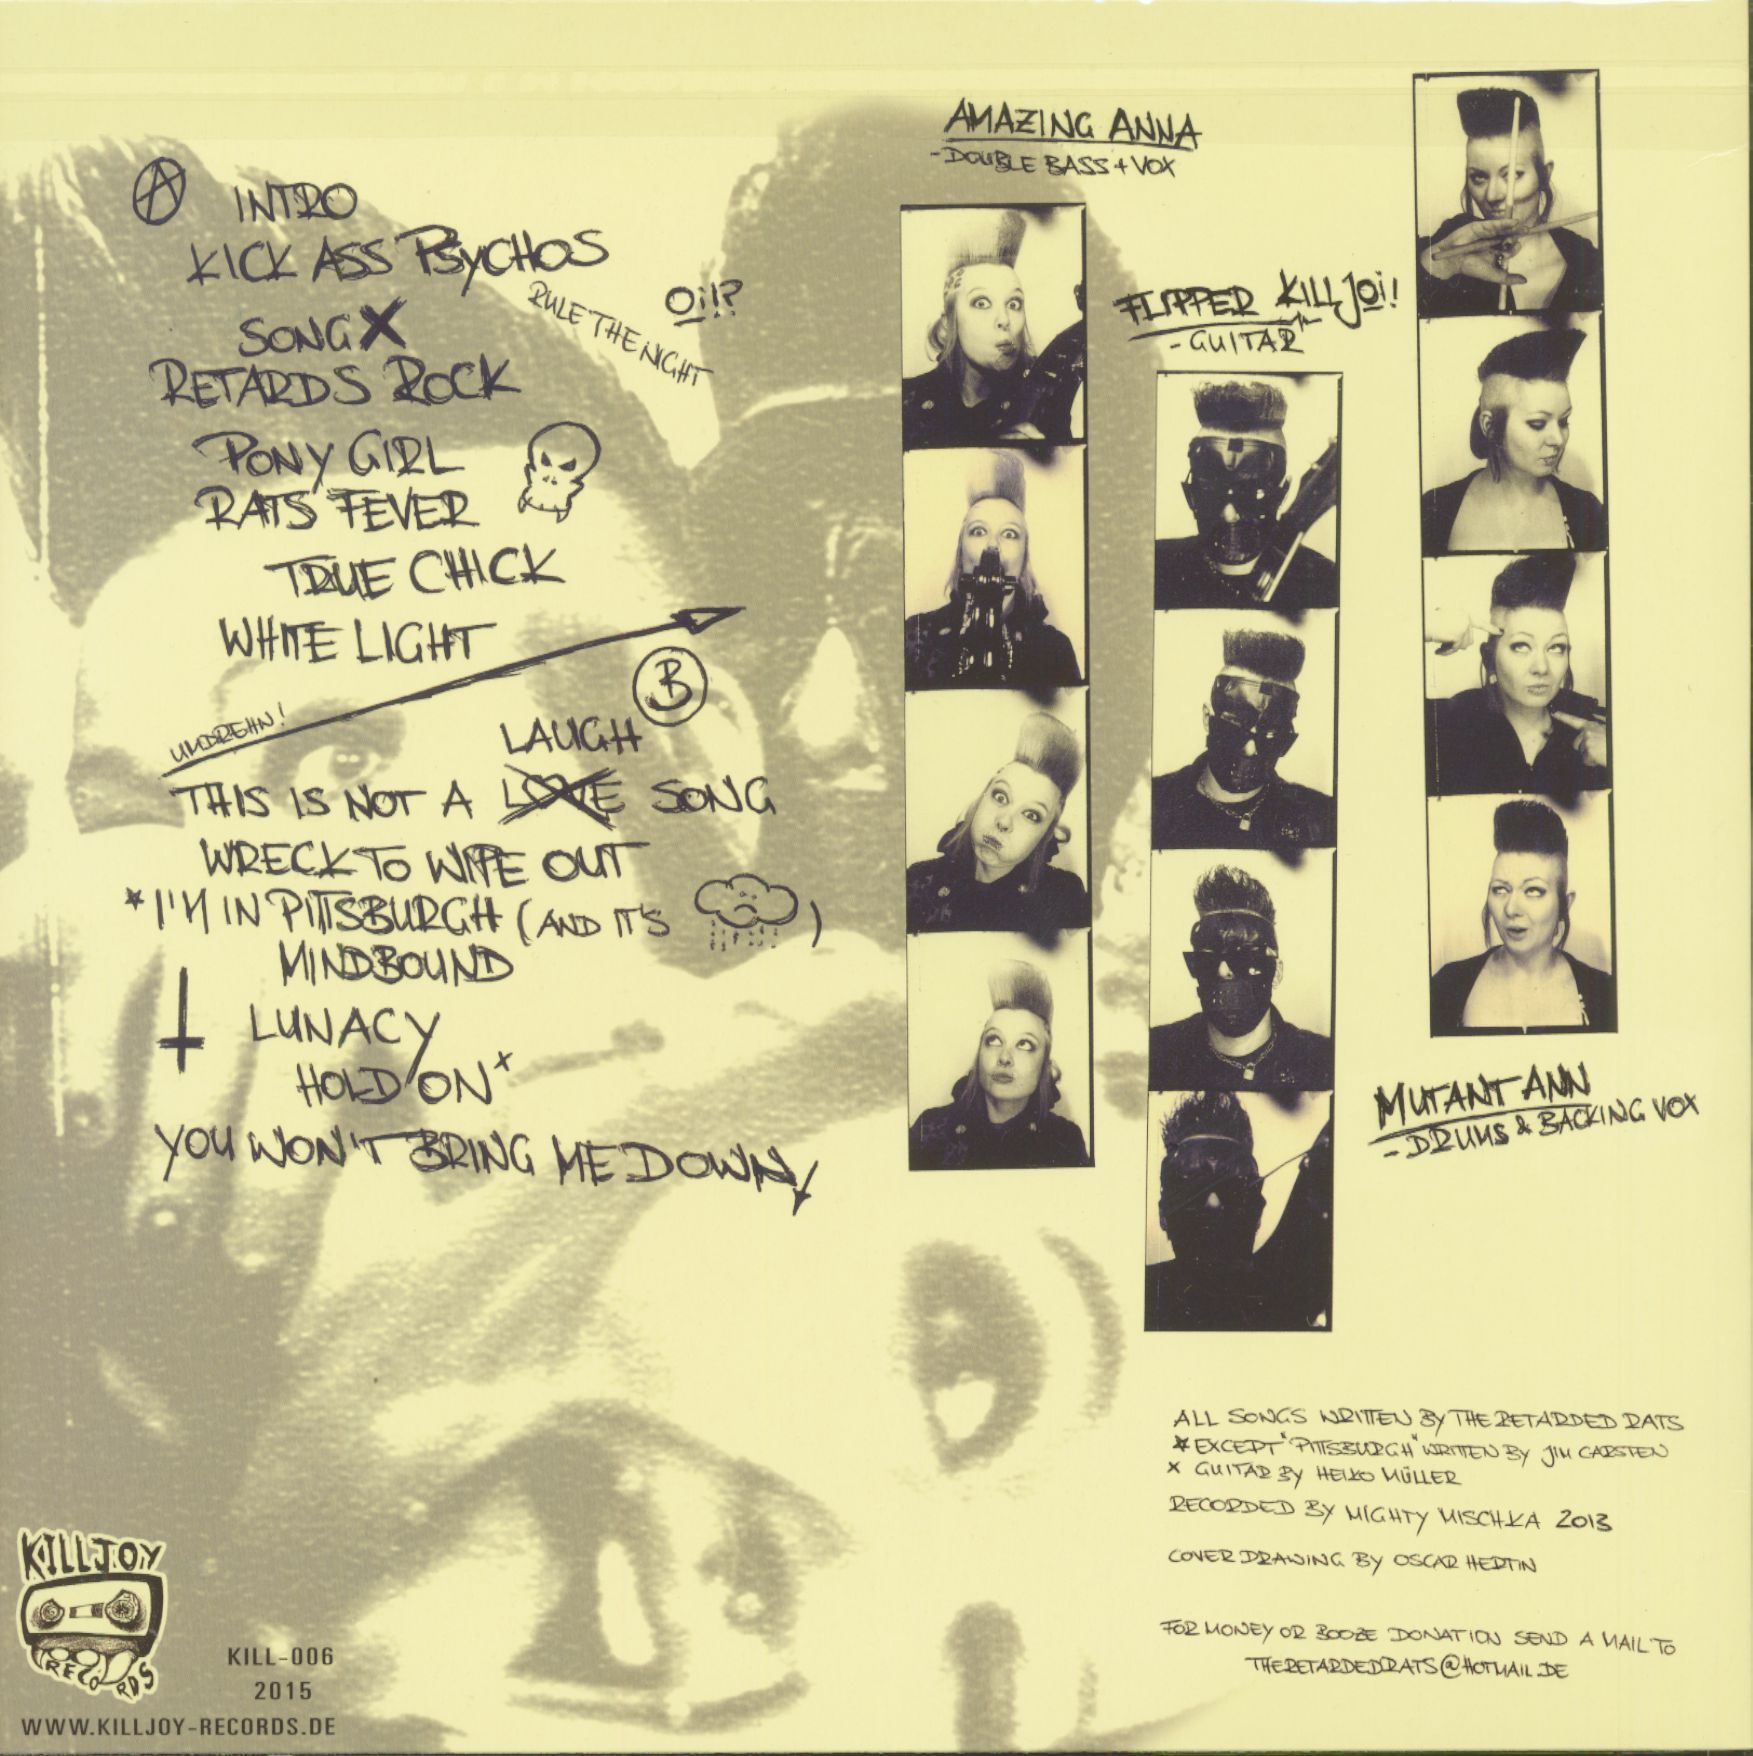 A INTRO
KICK ASS PSYCHOS
RULE THE NIGHT
Oi!?
SONG X
RETARDS ROCK
PONY GIRL
RATS FEVER
TRUE CHICK
WHITE LIGHT
UMDREHN!
B
LAUGH
THIS IS NOT A LOVE SONG
WRECK TO WIPE OUT
* I'M IN PITTSBURGH (AND IT'S )
MINDBOUND
LUNACY
HOLD ON x
YOU WON'T BRING ME DOWN
AMAZING ANNA
- DOUBLE BASS + VOX
FLIPPER KILLJOi!
- GUITAR
MUTANT ANN
- DRUMS & BACKING VOX
ALL SONGS WRITTEN BY THE RETARDED RATS
* EXCEPT "PITTSBURGH" WRITTEN BY JIM CARSTEN
x GUITAR BY HEIKO MÜLLER
RECORDED BY MIGHTY MISCHKA 2013
COVER DRAWING BY OSCAR HERTIN
FOR MONEY OR BOOZE DONATION SEND A MAIL TO
THERETARDEDRATS@HOTMAIL.DE
KILLJOY
RECORDS
KILL-006
2015
WWW.KILLJOY-RECORDS.DE